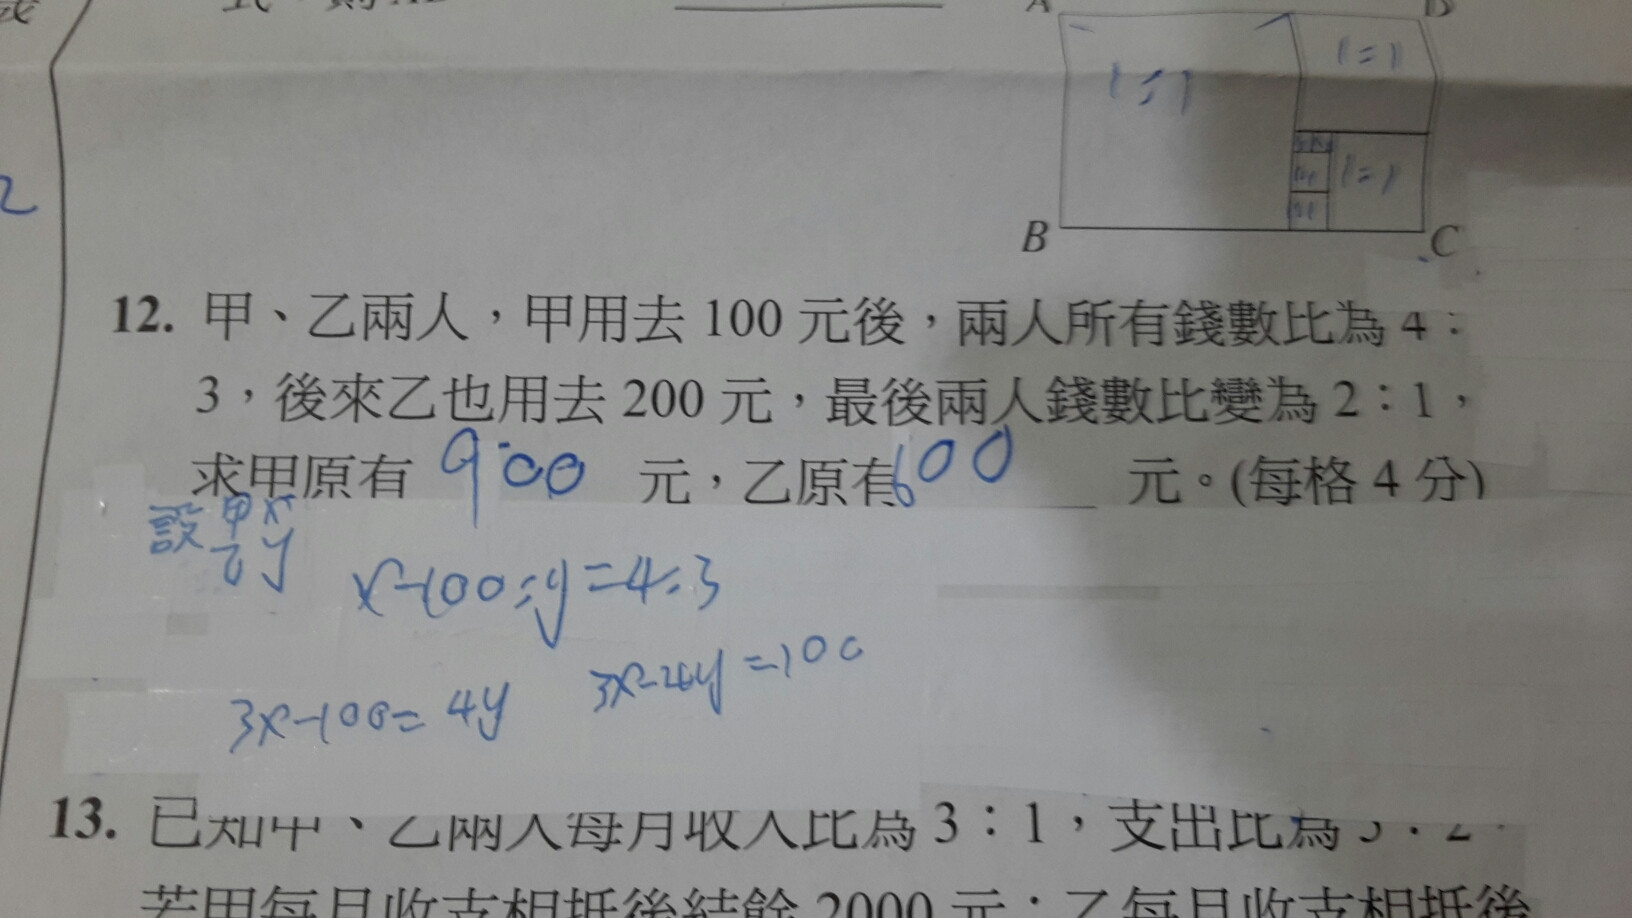 2
1:1
1=1
1=1
B
C
12. 甲、乙兩人，甲用去 100 元後，兩人所有錢數比為 4：
3，後來乙也用去 200 元，最後兩人錢數比變為 2：1，
求甲原有 900 元，乙原有 600 元。(每格 4 分)
設 甲 x
乙 y
x-100:y=4:3
3x-100=4y
13. 已知甲、乙兩人每月收入比為 3：1，支出比為
若甲每月收支相抵後結餘 2000 元；乙每月收支相抵後